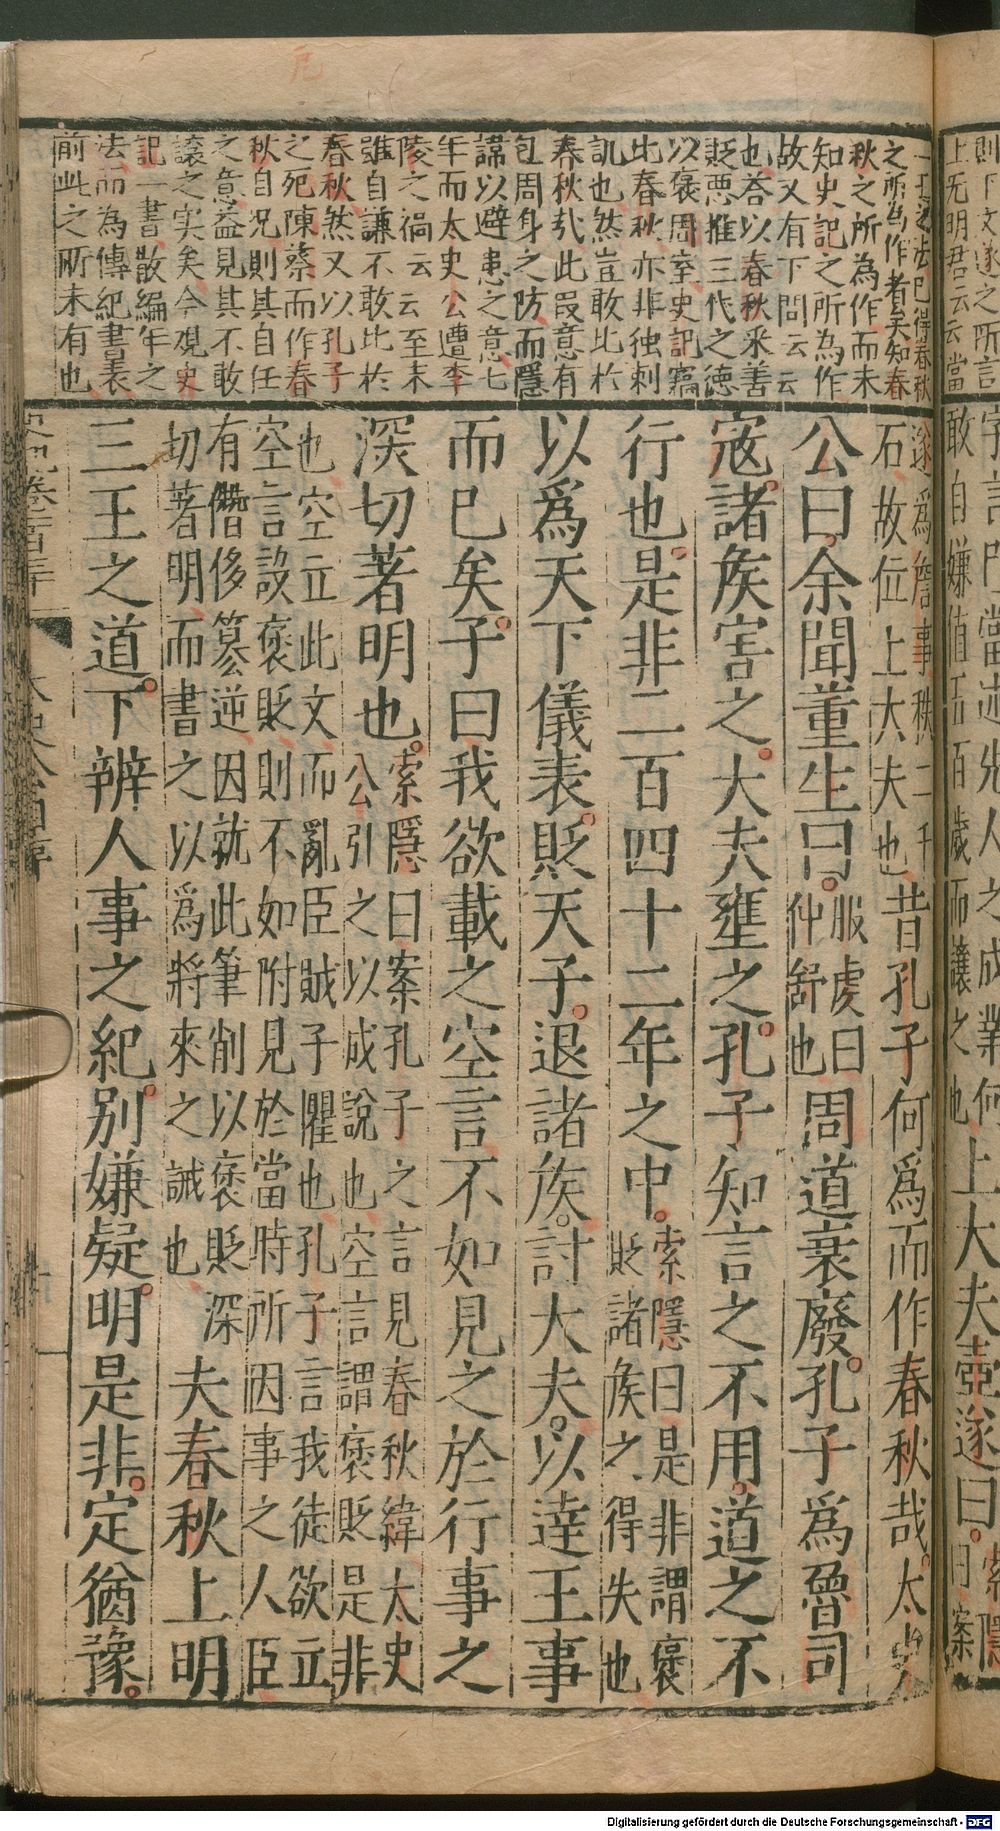 則下文遂之所言
上无明君云云當
一王之法已得春秋
之所為作者矣知春
秋之所為作而未
知史記之所為作
故又有下問云云
也答以春秋釆善
貶惡推三代之德
以褒周室史記竊
比春秋亦非独刺
訊也然豈敢比於
春秋㢤此叚意有
包周身之防而隱
諱以避患之意七
年而太史公遭李
陵之禍云云至末
雖自謙不敢比於
春秋然又以孔子
之戹陳蔡而作春
秋自况則其自任
之意益見其不敢
讓之实矣今观史
記一書散編年之
法而為傳紀書表
前此之所未有也
敢自嫌值五百歲而讓之也
上大夫壺遂曰
索隱
曰案
遂爲詹事秩二千
石故位上大夫也
昔孔子何爲而作春秋哉太史
公曰余聞董生曰
服虔曰
仲舒也
周道衰廢孔子爲魯司
寇諸矦害之大夫壅之孔子知言之不用道之不
行也是非二百四十二年之中
索隱曰是非謂褒
貶諸矦之得失也
以爲天下儀表貶天子退諸矦討大夫以達王事
而已矣子曰我欲載之空言不如見之於行事之
深切著明也
索隱曰案孔子之言見春秋緯太史
公引之以成說也空言謂褒貶是非
也空立此文而亂臣賊子懼也孔子言我徒欲立
空言設褒貶則不如附見於當時所因事之人臣
有僭侈篡逆因就此筆削以褒貶深
切著明而書之以爲將來之誡也
夫春秋上明
三王之道下辨人事之紀別嫌疑明是非定猶豫
Digitalisierung gefördert durch die Deutsche Forschungsgemeinschaft - DFG